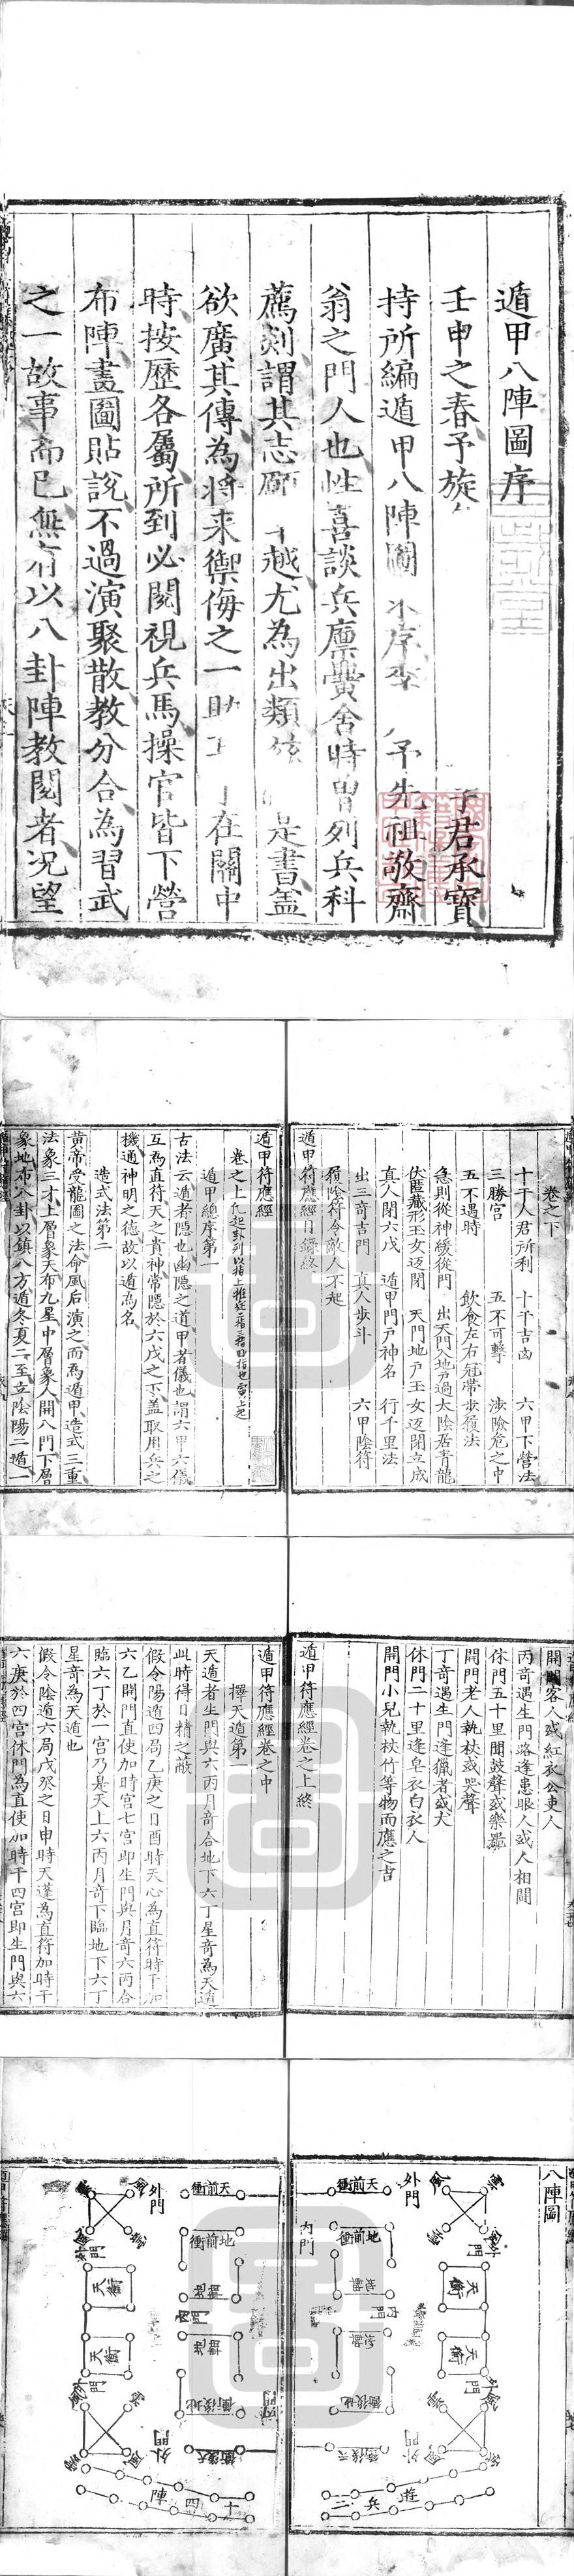 遁甲八陣圖序
壬申之春予旋
君承寶
持所編遁甲八陣圖
予先祖敬齋
翁之門人也性喜談兵廩黌舍時曽列兵科
薦剡謂其志願
越尤為出類
是書盖
欲廣其傳為將来禦侮之一助
在關中
時按歷各屬所到必閱視兵馬操官皆下營
布陣畫圖貼說不過演聚散教分合為習武
之一故事而已無有以八卦陣教閱者况望
卷之下
十干人君所利 十干吉凶 六甲下營法
三勝宮 五不可擊 涉險危之中
五不遇時 飲食左右冠帶步履法
急則從神緩從門 出天門入地戶過太陰居青龍
伏匿藏形玉女返閉 天門地戶玉女返閉立成
真人閉六戊 遁甲門戶神名 行千里法
出三奇吉門 真人步斗 六甲陰符
殯陰符令敵人不起
遁甲符應經目錄終
遁甲符應經
卷之上
遁甲總序第一
古法云遁者隱也幽隱之道甲者儀也謂六甲六儀
互為直符天之貴神常隱於六戊之下盖取用兵之
機通神明之德故以遁為名
造式法第二
黄帝受龍圖之法命風后演之而為遁甲造式三重
法象三才上層象天布九星中層象人開八門下層
象地布八卦以鎮八方遁冬夏二至立陰陽二遁一
開門客人或紅衣公吏人
丙奇遇生門路逢患眼人或人相鬪
休門五十里聞鼓聲或樂器
開門老人執杖或哭聲
丁奇遇生門逢獵者或犬
休門二十里逢皂衣白衣人
開門小兒執杖竹等物而應之吉
遁甲符應經卷之上終
遁甲符應經卷之中
擇天遁第一
天遁者生門與六丙月奇合地下六丁星奇為天遁
此時得日精之蔽
假令陽遁四局乙庚之日酉時天心為直符時干加
六乙開門直使加時宮七宮即生門與月奇六丙合
臨六丁於一宮乃是天上六丙月奇下臨地下六丁
星奇為天遁也
假令陰遁六局戊癸之日申時天蓬為直符加時干
六庚於四宮休門為直使加時干四宮即生門與六
八陣圖
外門
天前衝
地前衝
內門
天衝
天衝
地後衝
天後衝
外門
遊兵三
外門
天前衝
地前衝
天衝
天衝
地後衝
天後衝
外門
十四陣